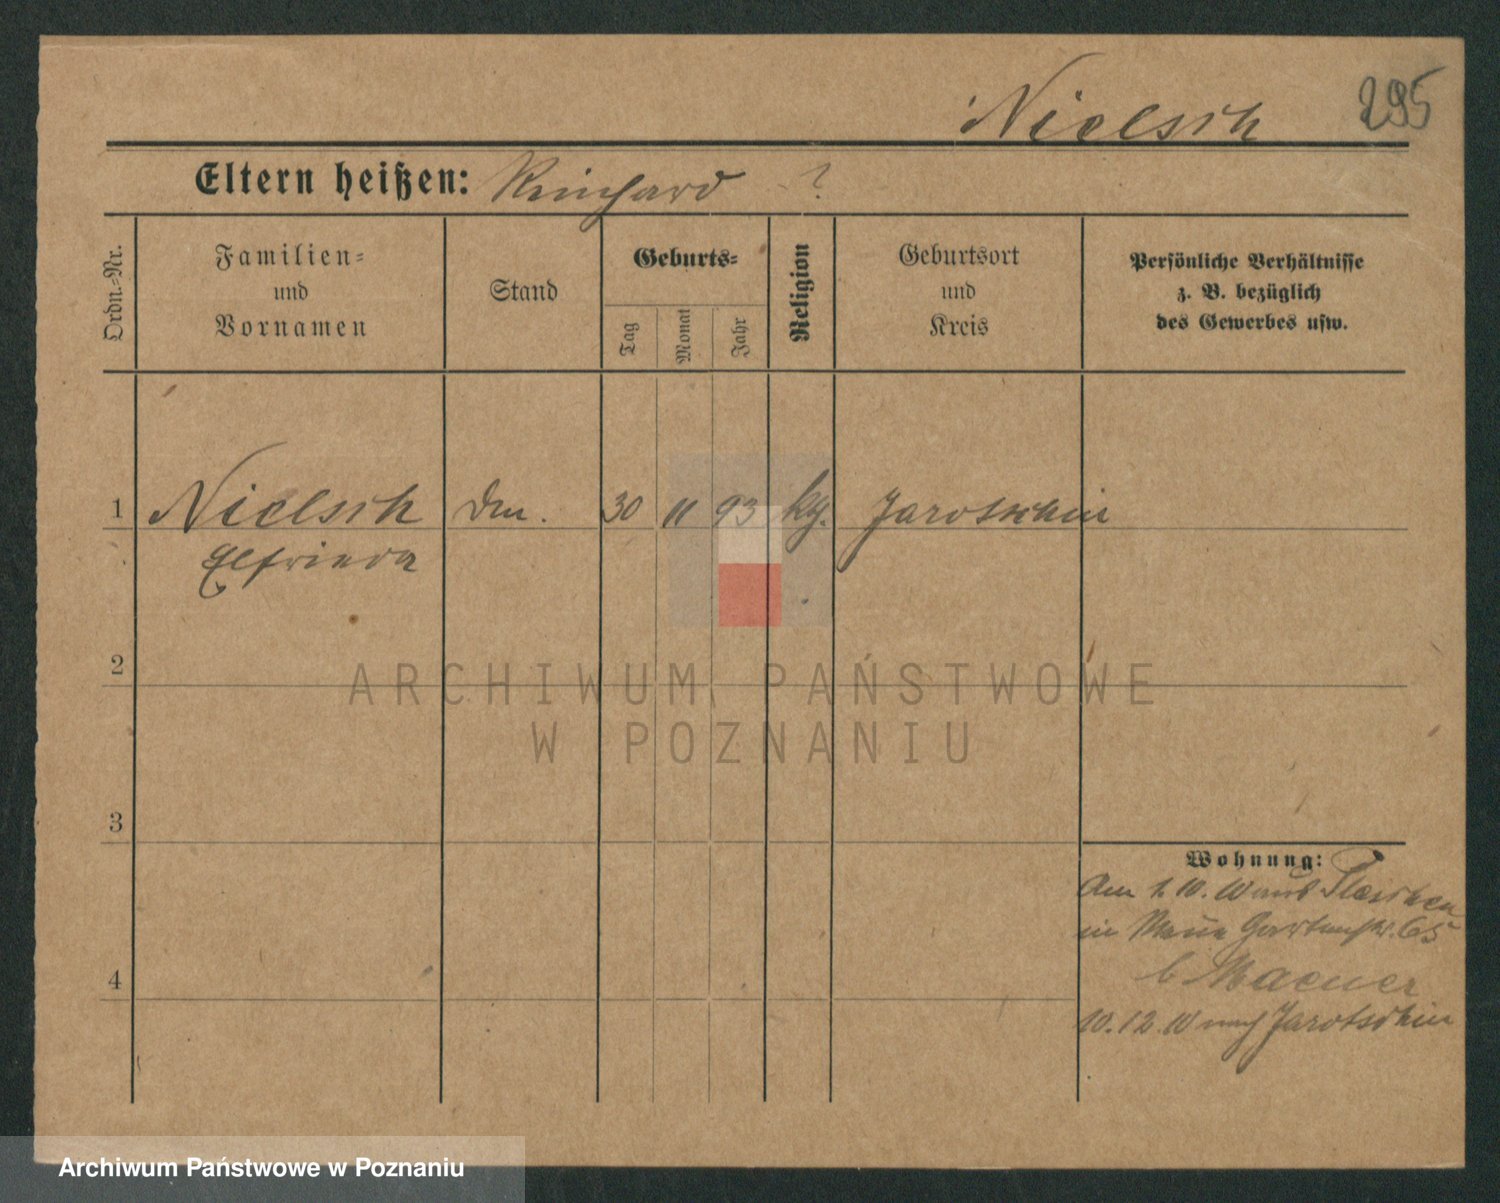 Nielsch 295
Eltern heißen: Reinhard ?
Ordn.-Nr.
Familien-
und
Vornamen
Stand
Geburts-
Tag
Monat
Jahr
Religion
Geburtsort
und
Kreis
Persönliche Verhältnisse
z. B. bezüglich
des Gewerbes usw.
1 Nielsch 30 11 93 Jarotschin
Elfrieda
2
ARCHIWUM PAŃSTWOWE
W POZNANIU
3
Wohnung:
Am 1.10.10 aus
in Gartenstr. 65
4
b
10.12.10 nach Jarotschin
Archiwum Państwowe w Poznaniu